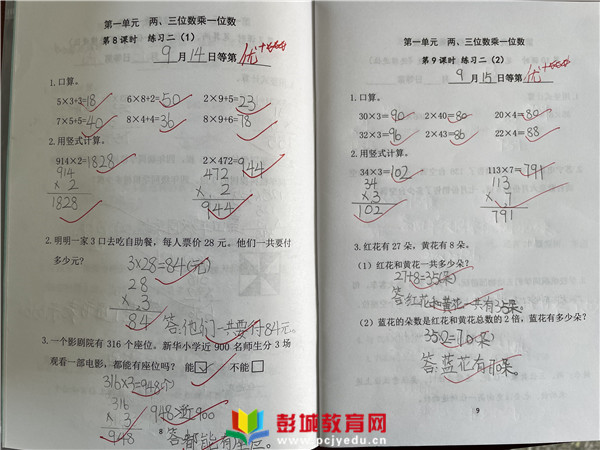 第一单元 两、三位数乘一位数
第8课时 练习二（1）
9月14日等第 优+
1.口算。
5×3+3=18 6×8+2=50 2×9+5=23
7×5+5=40 8×4+4=36 8×9+6=78
2.用竖式计算。
914×2=1828 2×472=944
914 472
× 2 × 2
1828 944
2.明明一家3口去吃自助餐，每人票价28元。他们一共要付
多少元？
3×28=84(元)
28
× 3
84
答:他们一共要付84元。
3.一个影剧院有316个座位。新华小学近900名师生分3场
观看一部电影，都能有座位吗？ 能☑ 不能□
316×3=948(个)
316
× 3
948
948>近900
答:都能有座位。
8
第一单元 两、三位数乘一位数
第9课时 练习二（2）
9月15日等第 优+
1.口算。
30×3=90 2×40=80 20×4=80
32×3=96 2×43=86 22×4=88
2.用竖式计算。
34×3=102 113×7=791
34 113
× 3 × 7
102 791
3.红花有27朵，黄花有8朵。
（1）红花和黄花一共多少朵？
27+8=35(朵)
答:红花和黄花一共有35朵。
（2）蓝花的朵数是红花和黄花总数的2倍，蓝花有多少朵？
35×2=70(朵)
答:蓝花有70朵。
9
彭城教育网
www.pcjyedu.cn